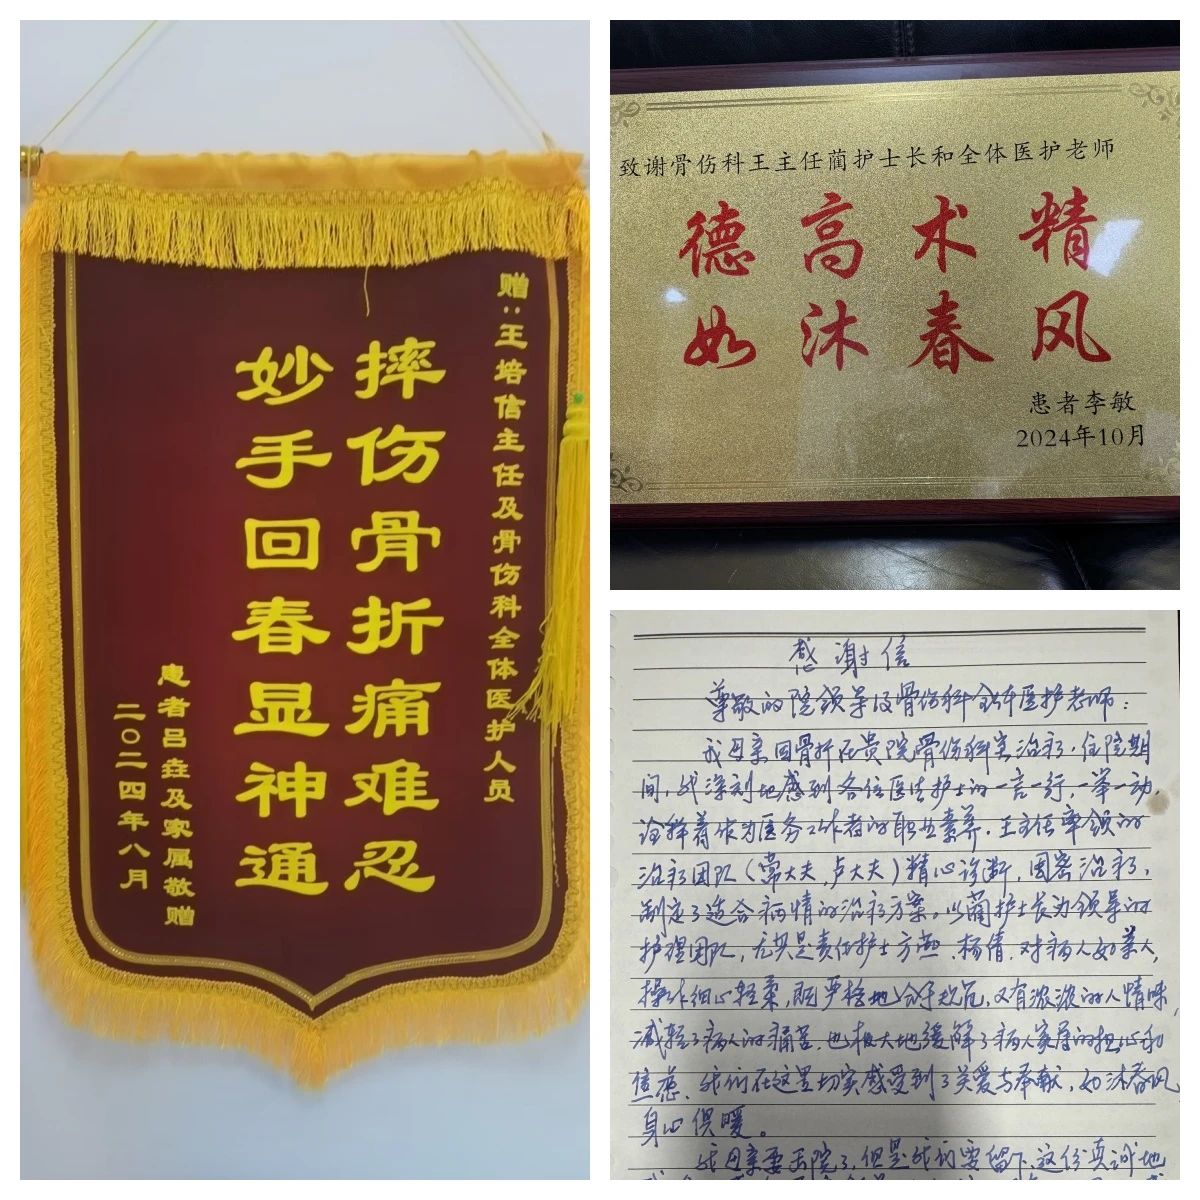 赠:王培信主任及骨伤科全体医护人员
摔伤骨折痛难忍
妙手回春显神通
患者吕垚及家属敬赠
二〇二四年八月
致谢骨伤科王主任蔺护士长和全体医护老师
德高术精
如沐春风
患者李敏
2024年10月
感谢信
尊敬的院领导及骨伤科全体医护老师:
我母亲因骨折在贵院骨伤科室治疗,住院期
间,我深刻地感到各位医生护士的一言一行,一举一动,
诠释着作为医务工作者的职业素养,王主任率领的
治疗团队(常大夫,卢大夫)精心诊断,周密治疗,
制定了适合病情的治疗方案。以蔺护士长为领导的
护理团队,尤其是责任护士方燕、杨倩,对病人如亲人,
操作细心轻柔,既严格地分寸规范,又有浓浓的人情味,
减轻了病人的痛苦,也极大地缓解了病人家属的担心和
焦虑、我们在这里切实感受到了关爱与奉献,如沐春风,
身心俱暖。
我母亲要出院了,但是我们要留下这份真诚地